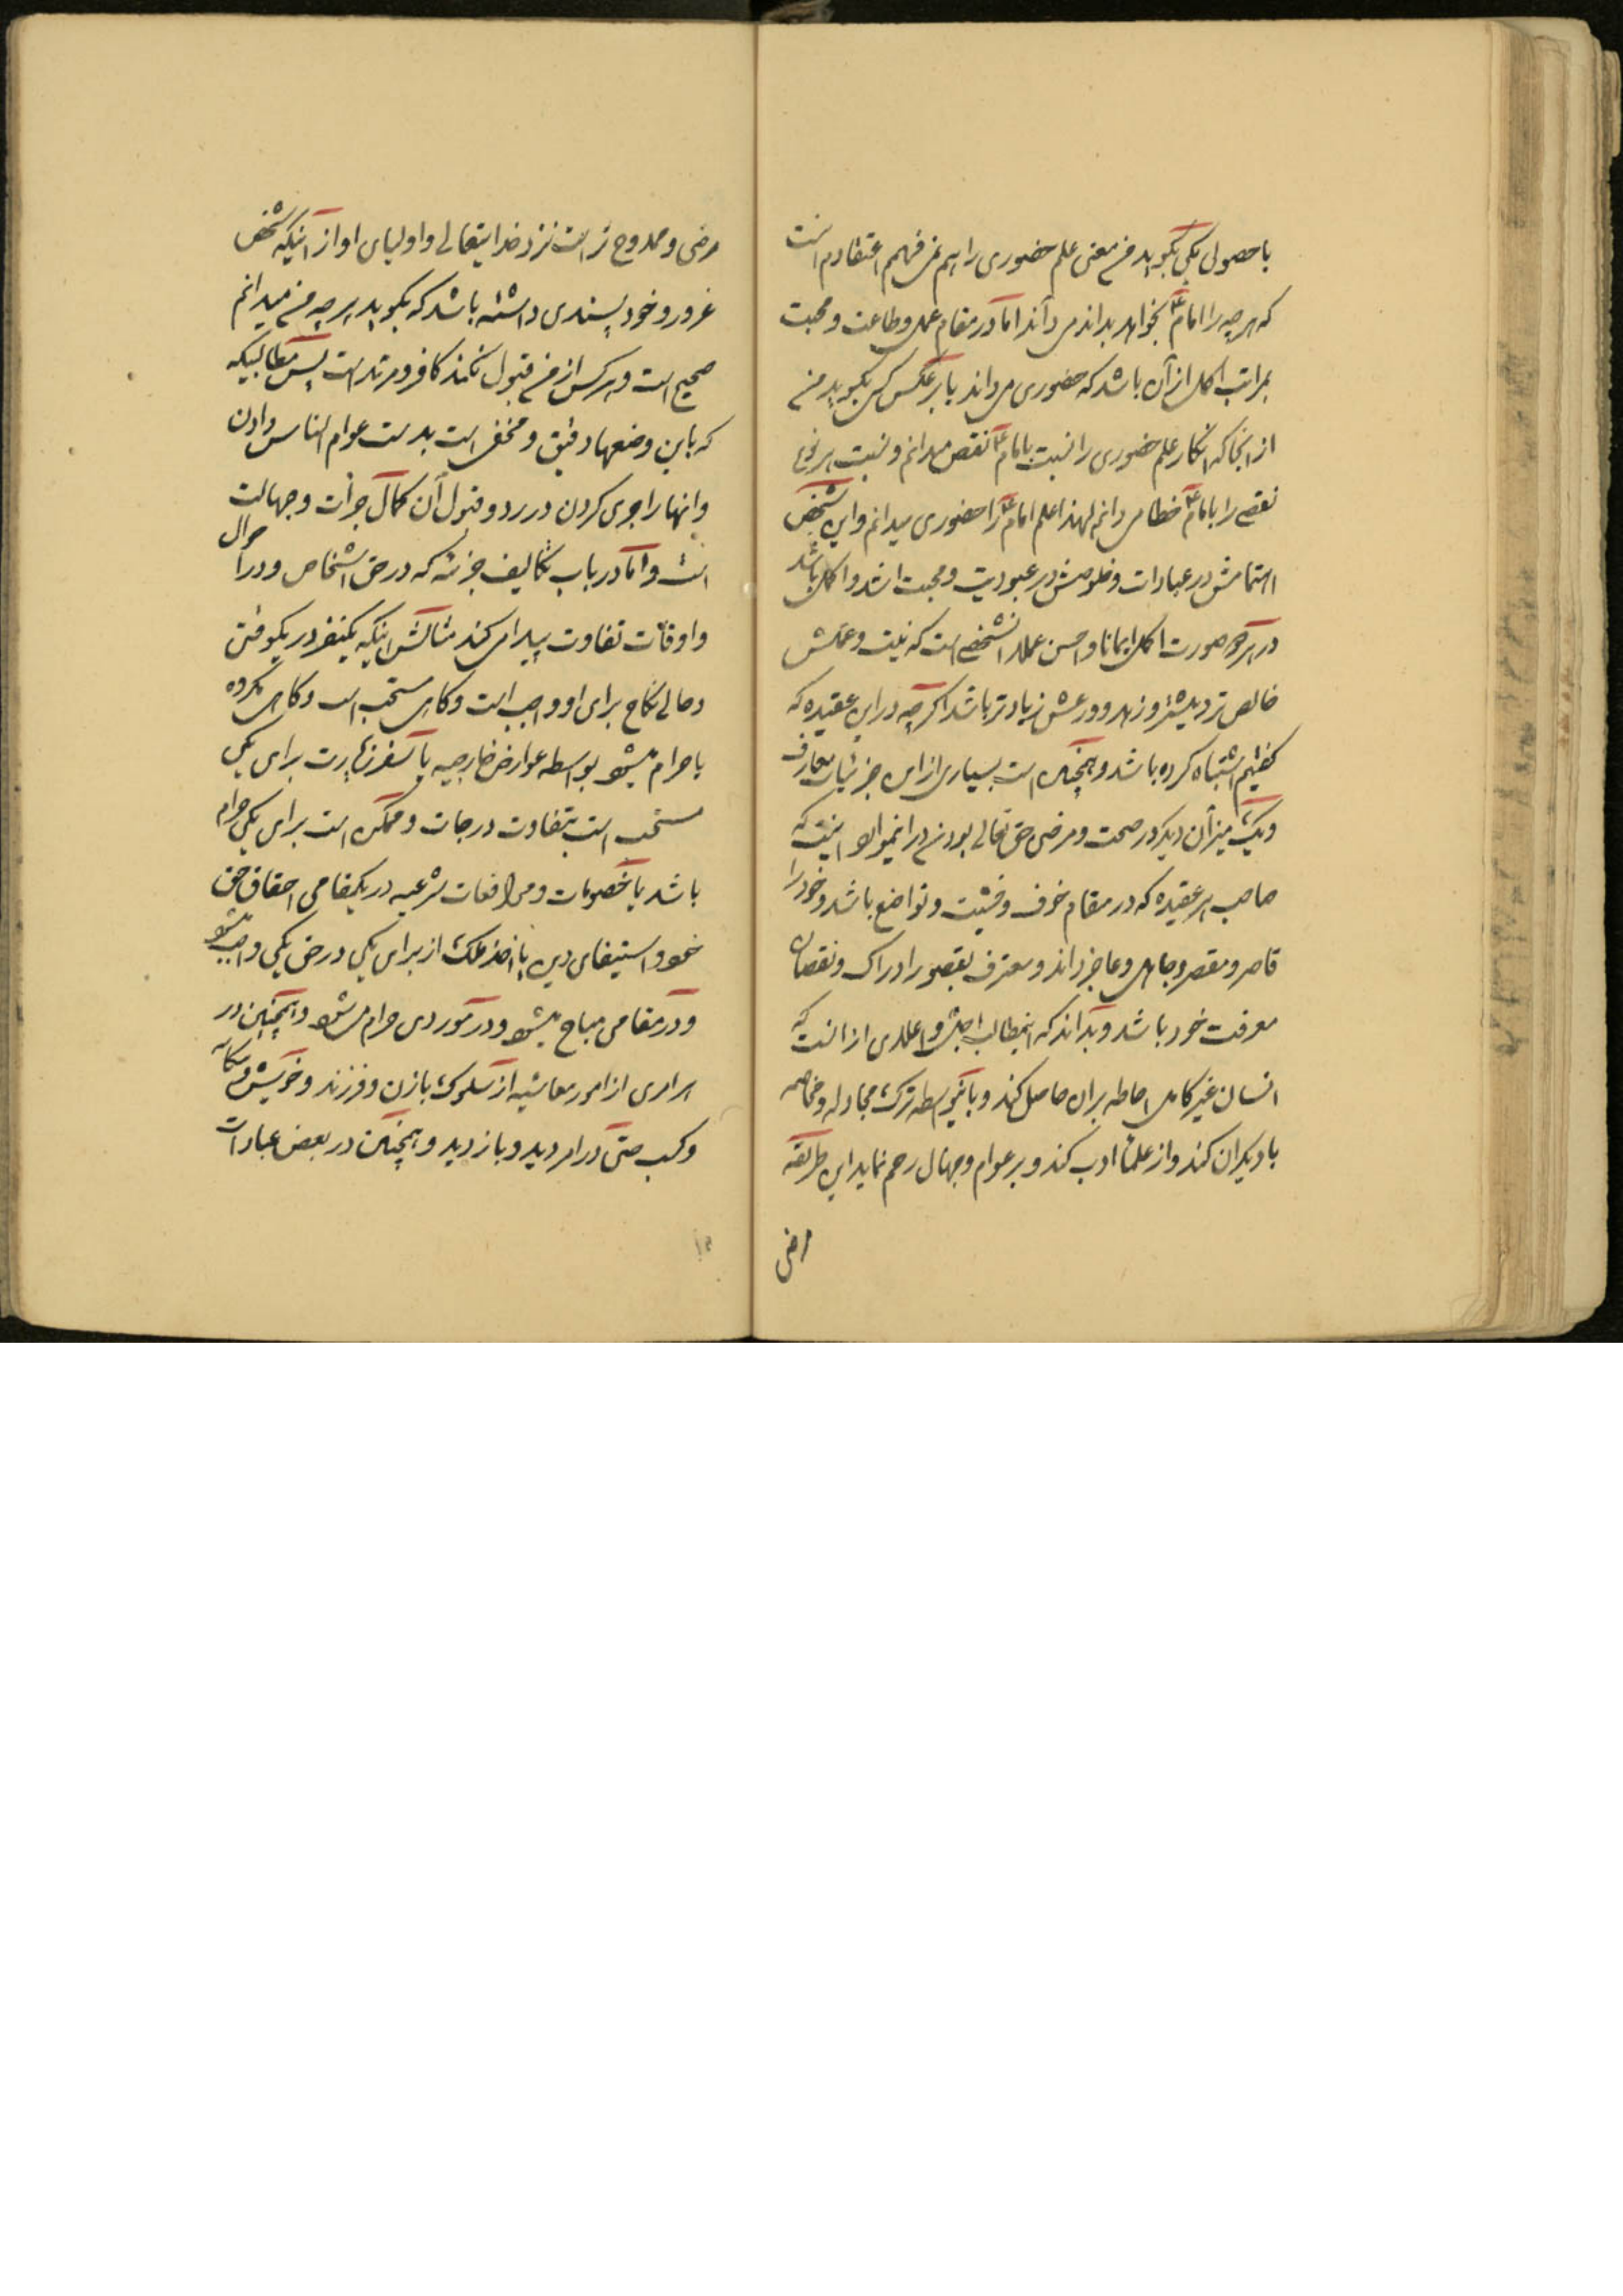 یا حصولی یکی بگوید من معنی علم حضوری را هم نمی فهمم اعتقادم اینست
که هرچه را امام ع بخواهد بداند می داند اما در مقام عمل و طاعت و محبت
بمراتب اکمل از آن باشد که حضوری می داند یا برعکس کسی بگوید من
از آنجا که انکار علم حضوری را نسبت بامام ع نقص میدانم و نسبت هر نوع
نقصی را بامام ع خطا می دانم لهذا علم امام ع را حضوری میدانم و این شخص
اهتمامش در عبادات و خلوصش در عبودیت و محبت اشد و اکمل باشد
در هر صورت اکمل ایمانا و احسن عملا آنشخصی است که نیت و عملش
خالص تر و بیشتر و زهد و ورعش زیادتر باشد اگرچه در این عقیده که
گفتیم اشتباه کرده باشد و همچنین است بسیاری از این جزئیات معارف
و یک میزان دیگر در صحت و مرضی حق تعالی بودن در اینموارد اینست که
صاحب هر عقیده که در مقام خوف و خشیت و تواضع باشد و خود را
قاصر و مقصر و جاهل و عاجز داند و معترف بقصور ادراک و نقصان
معرفت خود باشد و بداند که اینمطالب اجل و اعلای از آنست که
انسان غیر کامل احاطه بران حاصل کند و باینواسطه ترک مجادله و مخاصمه
با دیگران کند و از علما ادب کند و بر عوام و جهال رحم نماید این طریقه
ارضی
مرضی و ممدوح تر است نزد خدایتعالی و اولیای او از آنیکه شخص
غرور و خود پسندی داشته باشد که بگوید هرچه من میدانم
صحیح است و هرکس از من قبول نکند کافر و مرتد است پس مطالبیکه
که باین وضعها دقیق و مخفی است بدست عوام الناس دادن
و انها را جری کردن در رد و قبول آن کمال جرأت و جهالت
است و اما در باب تکالیف جزئیه که در حق اشخاص و در احوال
و اوقات تفاوت پیدا می کند مثالش اینکه یکنفر در یکوقتی
و حالی نکاح برای او واجب است و گاهی مستحب است و گاهی مکروه
یا حرام میشود بواسطه عوارض خارجیه یا سفر زیارت برای یکی
مستحب است بتفاوت درجات و ممکن است برای یکی حرام
باشد یا خصومات و مرافعات شرعیه در یکمقامی احقاق حق
خود و استیفای دین یا اخذ ملک از برای یکی در حق یکی واجب میشود
و در مقامی مباح میشود و در موردی حرام می شود و همچنین در
هر امری از امور معاشیه از سلوک با زن و فرزند و خویش و بیگانه
و کسب حتی در امر دید و بازدید و همچنین در بعض عبادات